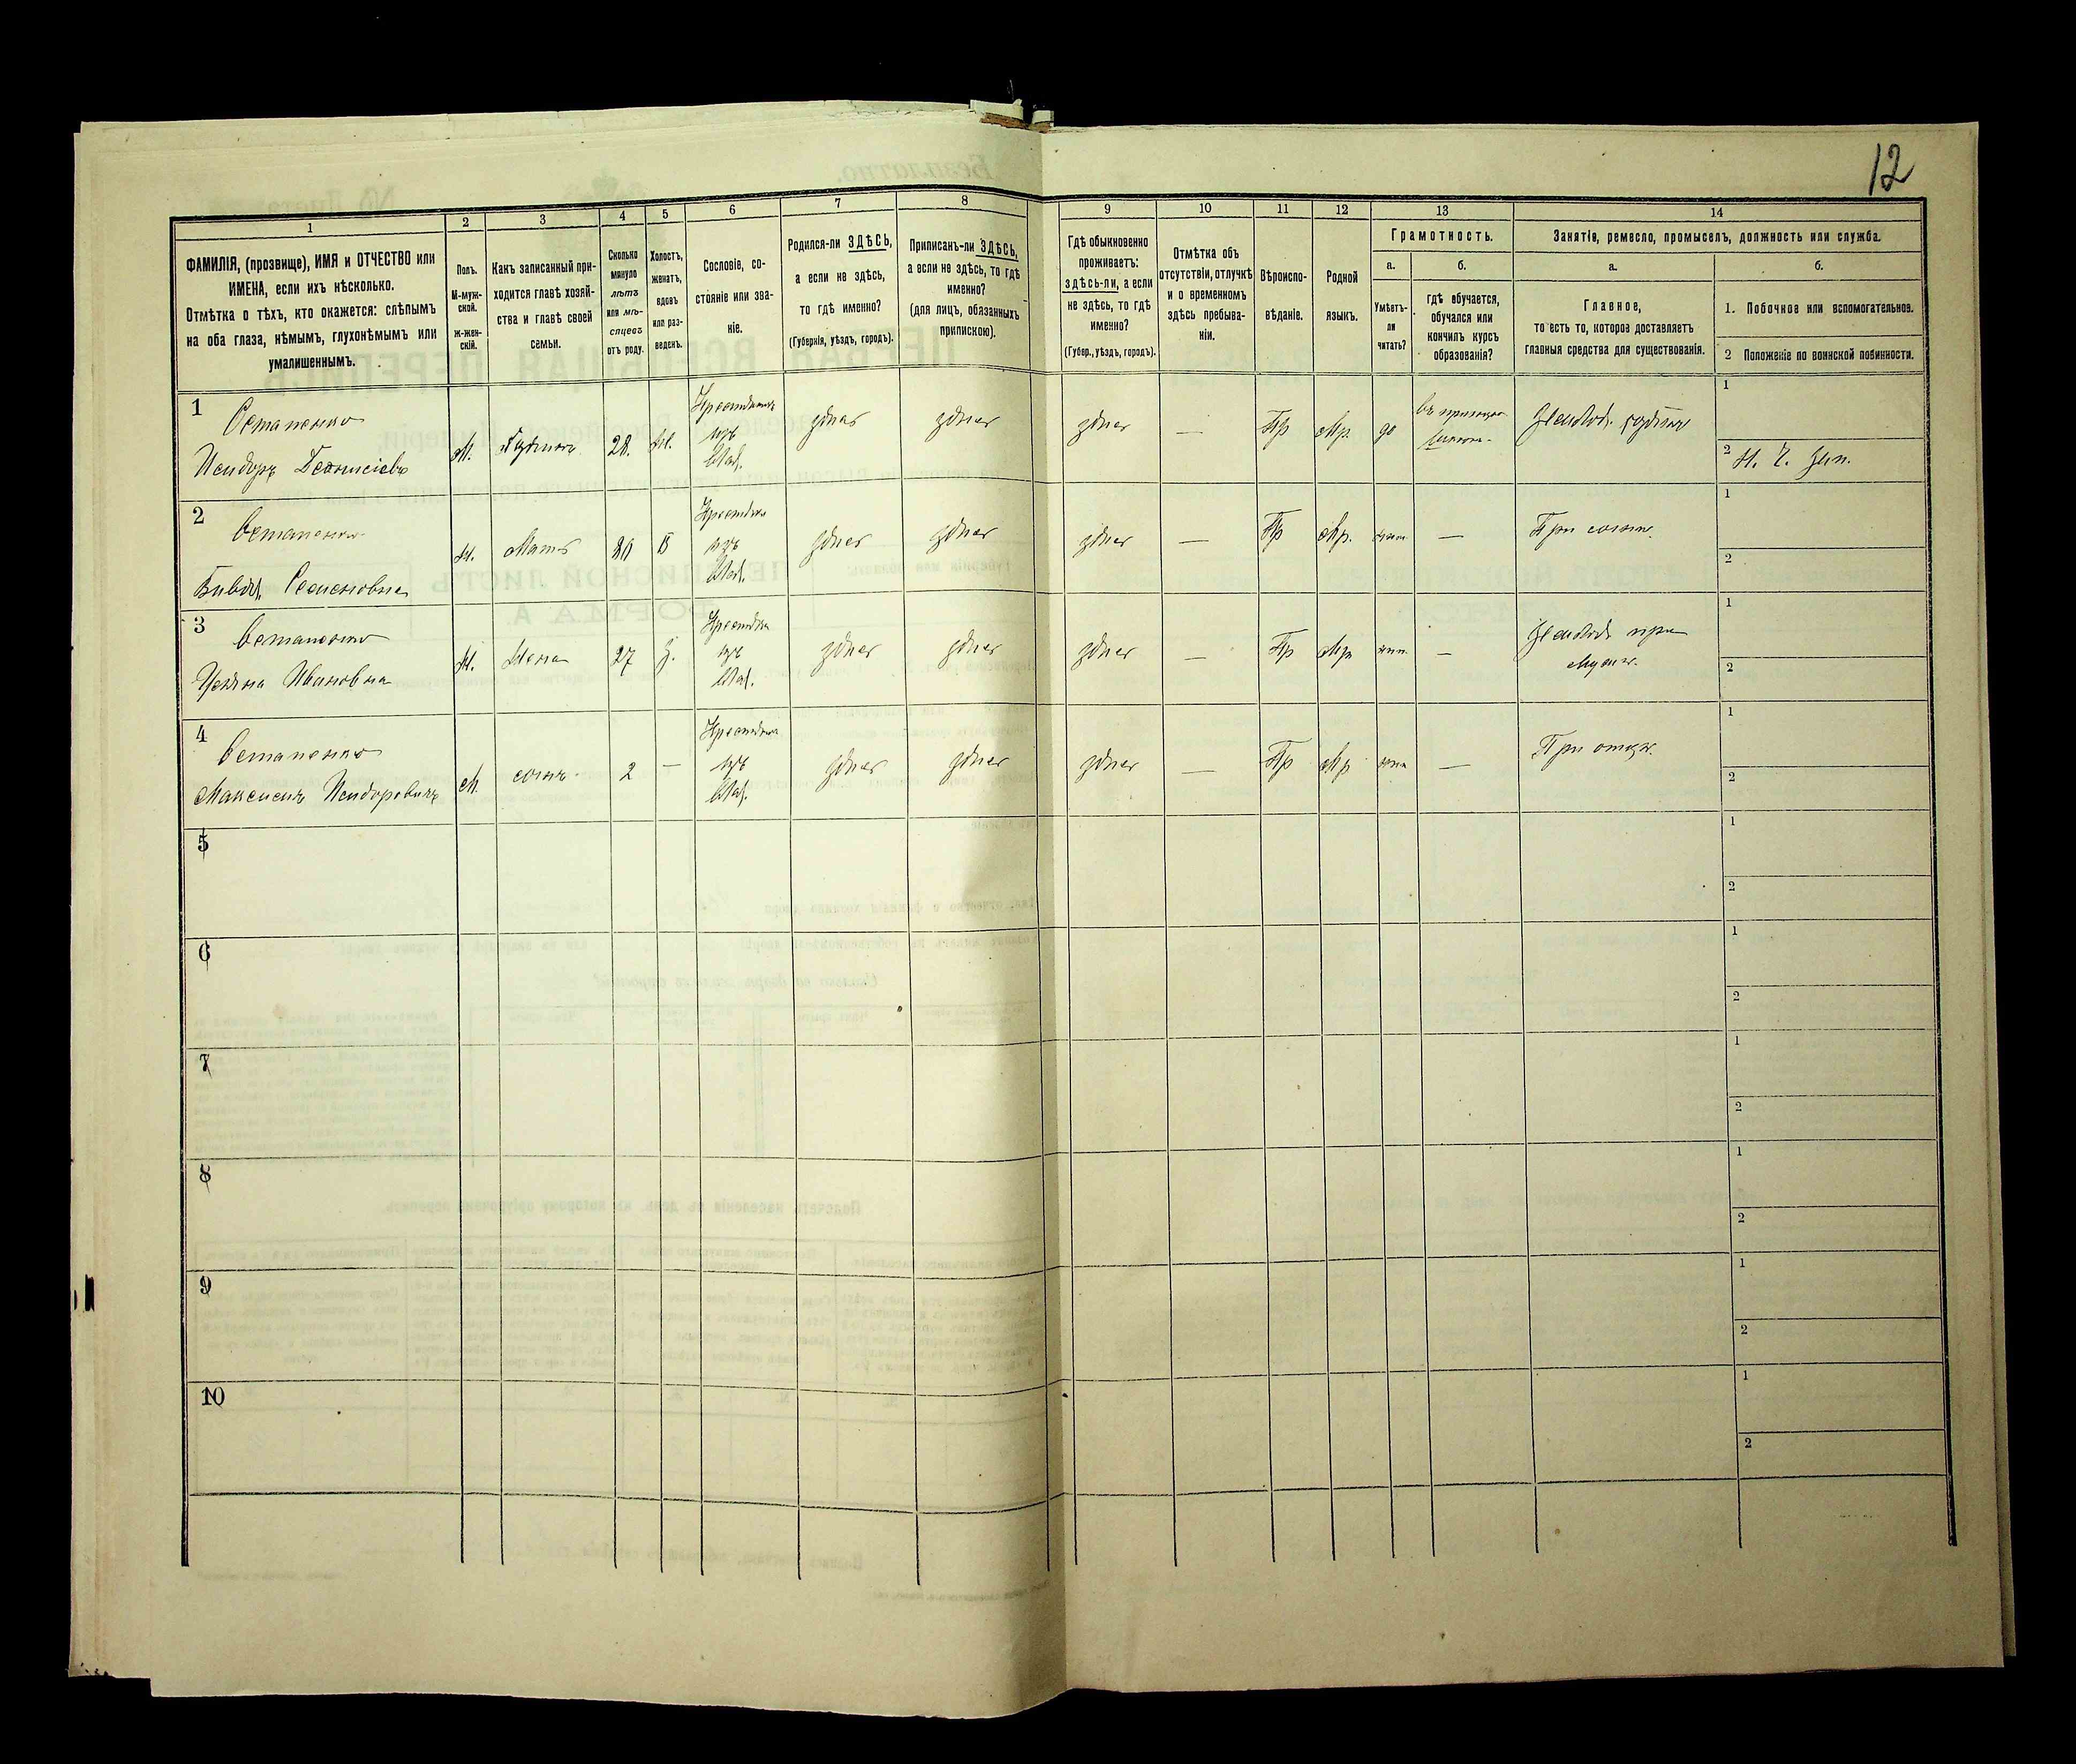 12
1
2
3
4
5
6
7
8
9
10
11
12
13
14
ФАМИЛІЯ, (прозвище), ИМЯ и ОТЧЕСТВО или
ИМЕНА, если ихъ нѣсколько.
Отмѣтка о тѣхъ, кто окажется: слѣпымъ
на оба глаза, нѣмымъ, глухонѣмымъ или
умалишеннымъ.
Полъ.
М-муж-
ской.
Ж-жен-
скій.
Какъ записанный при-
ходится главѣ хозяй-
ства и главѣ своей
семьи.
Сколько
минуло
лѣтъ
или мѣ-
сяцевъ
отъ роду.
Холостъ,
женатъ,
вдовъ
или раз-
веденъ.
Сословіе, со-
стояніе или зва-
ніе.
Родился-ли ЗДѢСЬ,
а если не здѣсь,
то гдѣ именно?
(Губернія, уѣздъ, городъ).
Приписанъ-ли ЗДѢСЬ,
а если не здѣсь, то гдѣ
именно?
(для лицъ, обязанныхъ
припиской).
Гдѣ обыкновенно
проживаетъ:
здѣсь-ли, а если
не здѣсь, то гдѣ
именно?
(Губер., уѣздъ, городъ).
Отмѣтка объ
отсутствіи, отлучкѣ
и о временномъ
здѣсь пребыва-
ніи.
Вѣроиспо-
вѣданіе.
Родной
языкъ.
Грамотность.
а.
Умѣетъ-
ли
читать?
б.
гдѣ обучается,
обучался или
кончилъ курсъ
образованія?
Занятіе, ремесло, промыселъ, должность или служба.
а.
Главное,
то есть то, которое доставляетъ
главныя средства для существованія.
б.
1. Побочное или вспомогательное.
2 Положеніе по воинской повинности.
1
Остапенко
М.
28.
Ж.
Крестьянинъ
изъ
здѣсь
здѣсь
здѣсь
—
Пр
Мр.
да
1
2
2
Остапенко
Семеновна
Ж.
Мать
В
изъ
здѣсь
здѣсь
здѣсь
—
Пр
Мр.
—
При сынѣ.
1
2
3
Остапенко
Ивановна
Ж.
Жена
27
З.
изъ
здѣсь
здѣсь
здѣсь
—
Пр
Мр
—
при
мужѣ.
1
2
4
Остапенко
Максимъ Исидоровичъ
М.
сынъ
2
—
изъ
здѣсь
здѣсь
здѣсь
—
Пр
Мр
—
При отцѣ.
1
2
5
1
2
6
1
2
7
1
2
8
1
2
9
1
2
10
1
2